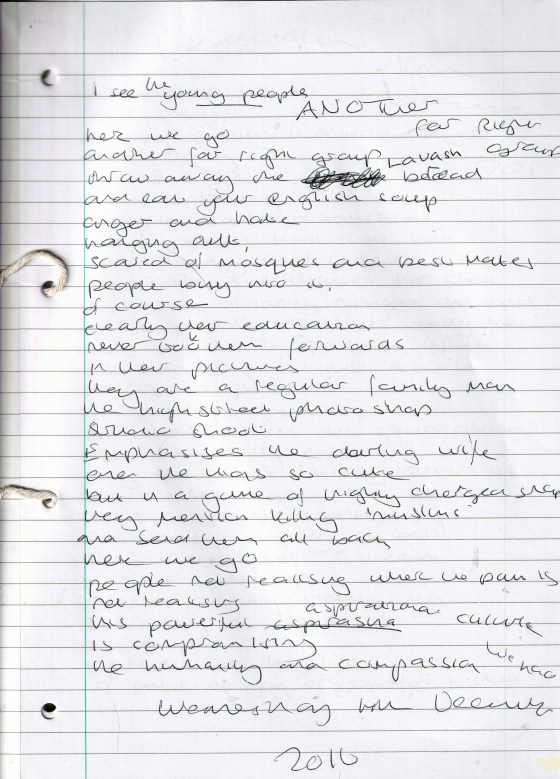 I see the young people
ANOTHER
far Right
group
here we go
another far right group
throw away the Lavash bread
and eat your english soup
anger and hate
hanging out,
scared of mosques and best mates
people buy into it,
of course
clearly their education
never took them forwards
in their pictures
they are a regular family man
the high street photo shop
studio shoot
Emphasises the darling wife
and the kids so cute
but in a game of highly charged
they mention killing 'muslims'
and send them all back
here we go
people not realising where the pain is
not realising
this powerful aspirational culture
is compromising
the humanity and compassion we had
Wednesday
2010